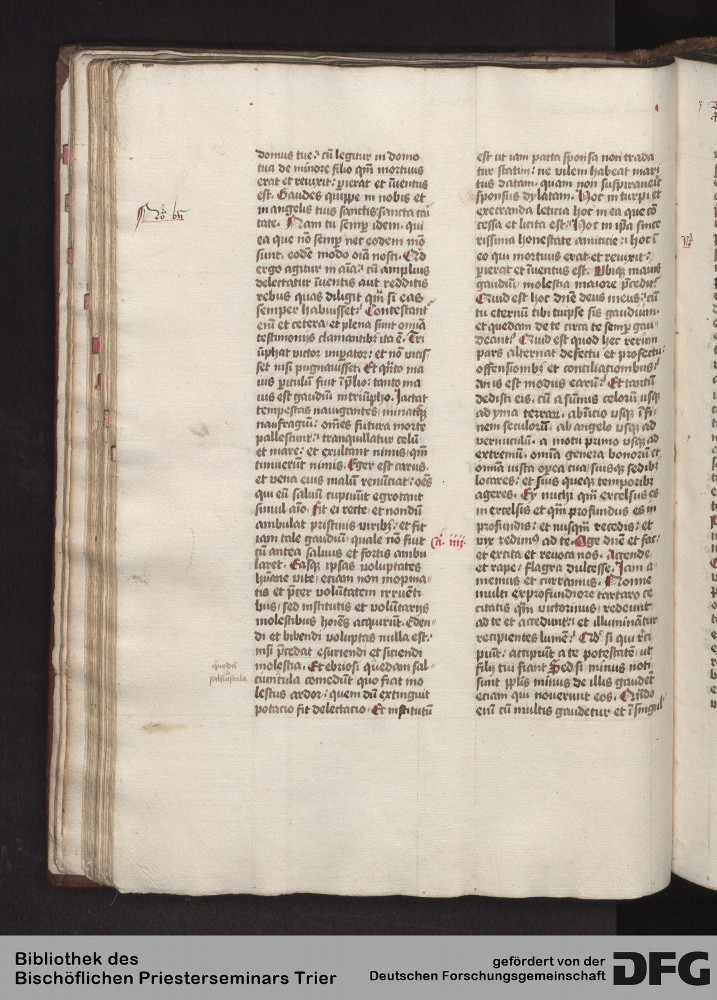 domus tue: cū legitur in domo
tua de minore filio qm̄ mortuus
erat et reuixit: p̄ierat et īuentus
est. Gaudes quippe in nobis et
in angelis tuis sanctis: sancta cāi
tate. Nam tu semp̄ idem. qui
ea que nō semp̄ nec eodem mō
sunt. eodē modo oīa nosti. Qd
ergo agitur in aīa: cū amplius
delectatur īuentis aut redditis
rebus quas diligit qm̄ si eas
semper habuisset: Contestant
eni et cetera et plena sunt omīa
testimoniis clamantibꝫ ita ē. Tri
ūphat victor īmp̄ator: et nō vicis
set nisi pugnauisset. Et qn̄to ma
ius p̄iculū fuit ī p̄lio: tanto ma
ius est gaudiū in triūpho. Iactat
tempestas nauigantes minaturqꝫ
naufragiū: om̄es futura morte
pallescunt: tranquillatur celū
et mare: et exultant nimis qm̄
timuerūt nimis. Eger est carus.
et vena eius malū renūciat: oēs
qui eū saluū cupiunt egrotant
simul aīo. Fit ei recte et nondū
ambulat pristinis viribꝫ: et fit
iam tale gaudiū quale nō fuit
cū antea saluus et fortis ambu
laret. Easqꝫ ipsas voluptates
hūane vite: eciam non inopina
tis et p̄ter volūtatem irruēti
bus: sed institutis et volūtariis
molestibus hoīes acquirūt. Eden
di et bibendi voluptas nulla est:
nisi p̄cedat esuriendi et sitiendi
molestia. Et ebriosi quedam sal
ciuncula comedūt quo fiat mo
lestus ardor: quem dū extinguit
potacio fit delectacio. Et institutū
est ut iam pacta sponsa non trada
tur statim: ne vilem habeat mari
tus datam. quam non suspirauerit
sponsus dylatam. Hoc in turpi et
execranda leticia hoc in ea que cō
cessa et licita est: Hoc in ip̄a since
rissima honestate amicicie: hoc ī
eo qui mortuus erat et reuixit:
p̄ierat et īuentus est. Vbiqꝫ maius
gaudiū molestia maiore p̄cedit:
Quid est hoc dn̄e deus meus: cū
tu eternū tibi tuipse sis gaudium.
et quedam de te circa te semp̄ gau
deant: Quid est quod hec rerum
pars alternat defectu et profectu:
offensionibꝫ et conciliacionibus:
an is est modus earū: Et tantū
dedisti eis. cū a sūmis celorū usqꝫ
ad yma terraꝝ. ab īnicio usqꝫ ī fi
nem seculorū. ab angelo usqꝫ ad
vermiculū. a motu primo usqꝫ ad
extremū. omīa genera bonorū et
omīa iusta opera tua suisqꝫ sedibꝫ
locares: et suis queqꝫ temporibꝫ
ageres. Ey michi qm̄ excelsus es
in excelsis et qm̄ profundus es in
profundis: et nusqm̄ recedis: et
vix redimꝰ ad te. Age dn̄e et fac:
et excita et reuoca nos. Accende
et rape: flagra dulcesse. Iam a
memus et curramus. Nonne
multi ex profundiore tartaro ce
citatis qm̄ victorinus redeunt
ad te et accedunt: et illuminātur
recipientes lumē: Qd si qui reci
piūt: accipiūt a te potestatē ut
filii tui fiant. Sed si minus noti
sunt pplīs minus de illis gaudet
eciam qui nouerunt eos. Quādo
eni cū multis gaudetur et ī singul
Cā. iiii.
salsiuscula
Bibliothek des
Bischöflichen Priesterseminars Trier
gefördert von der
Deutschen Forschungsgemeinschaft
DFG